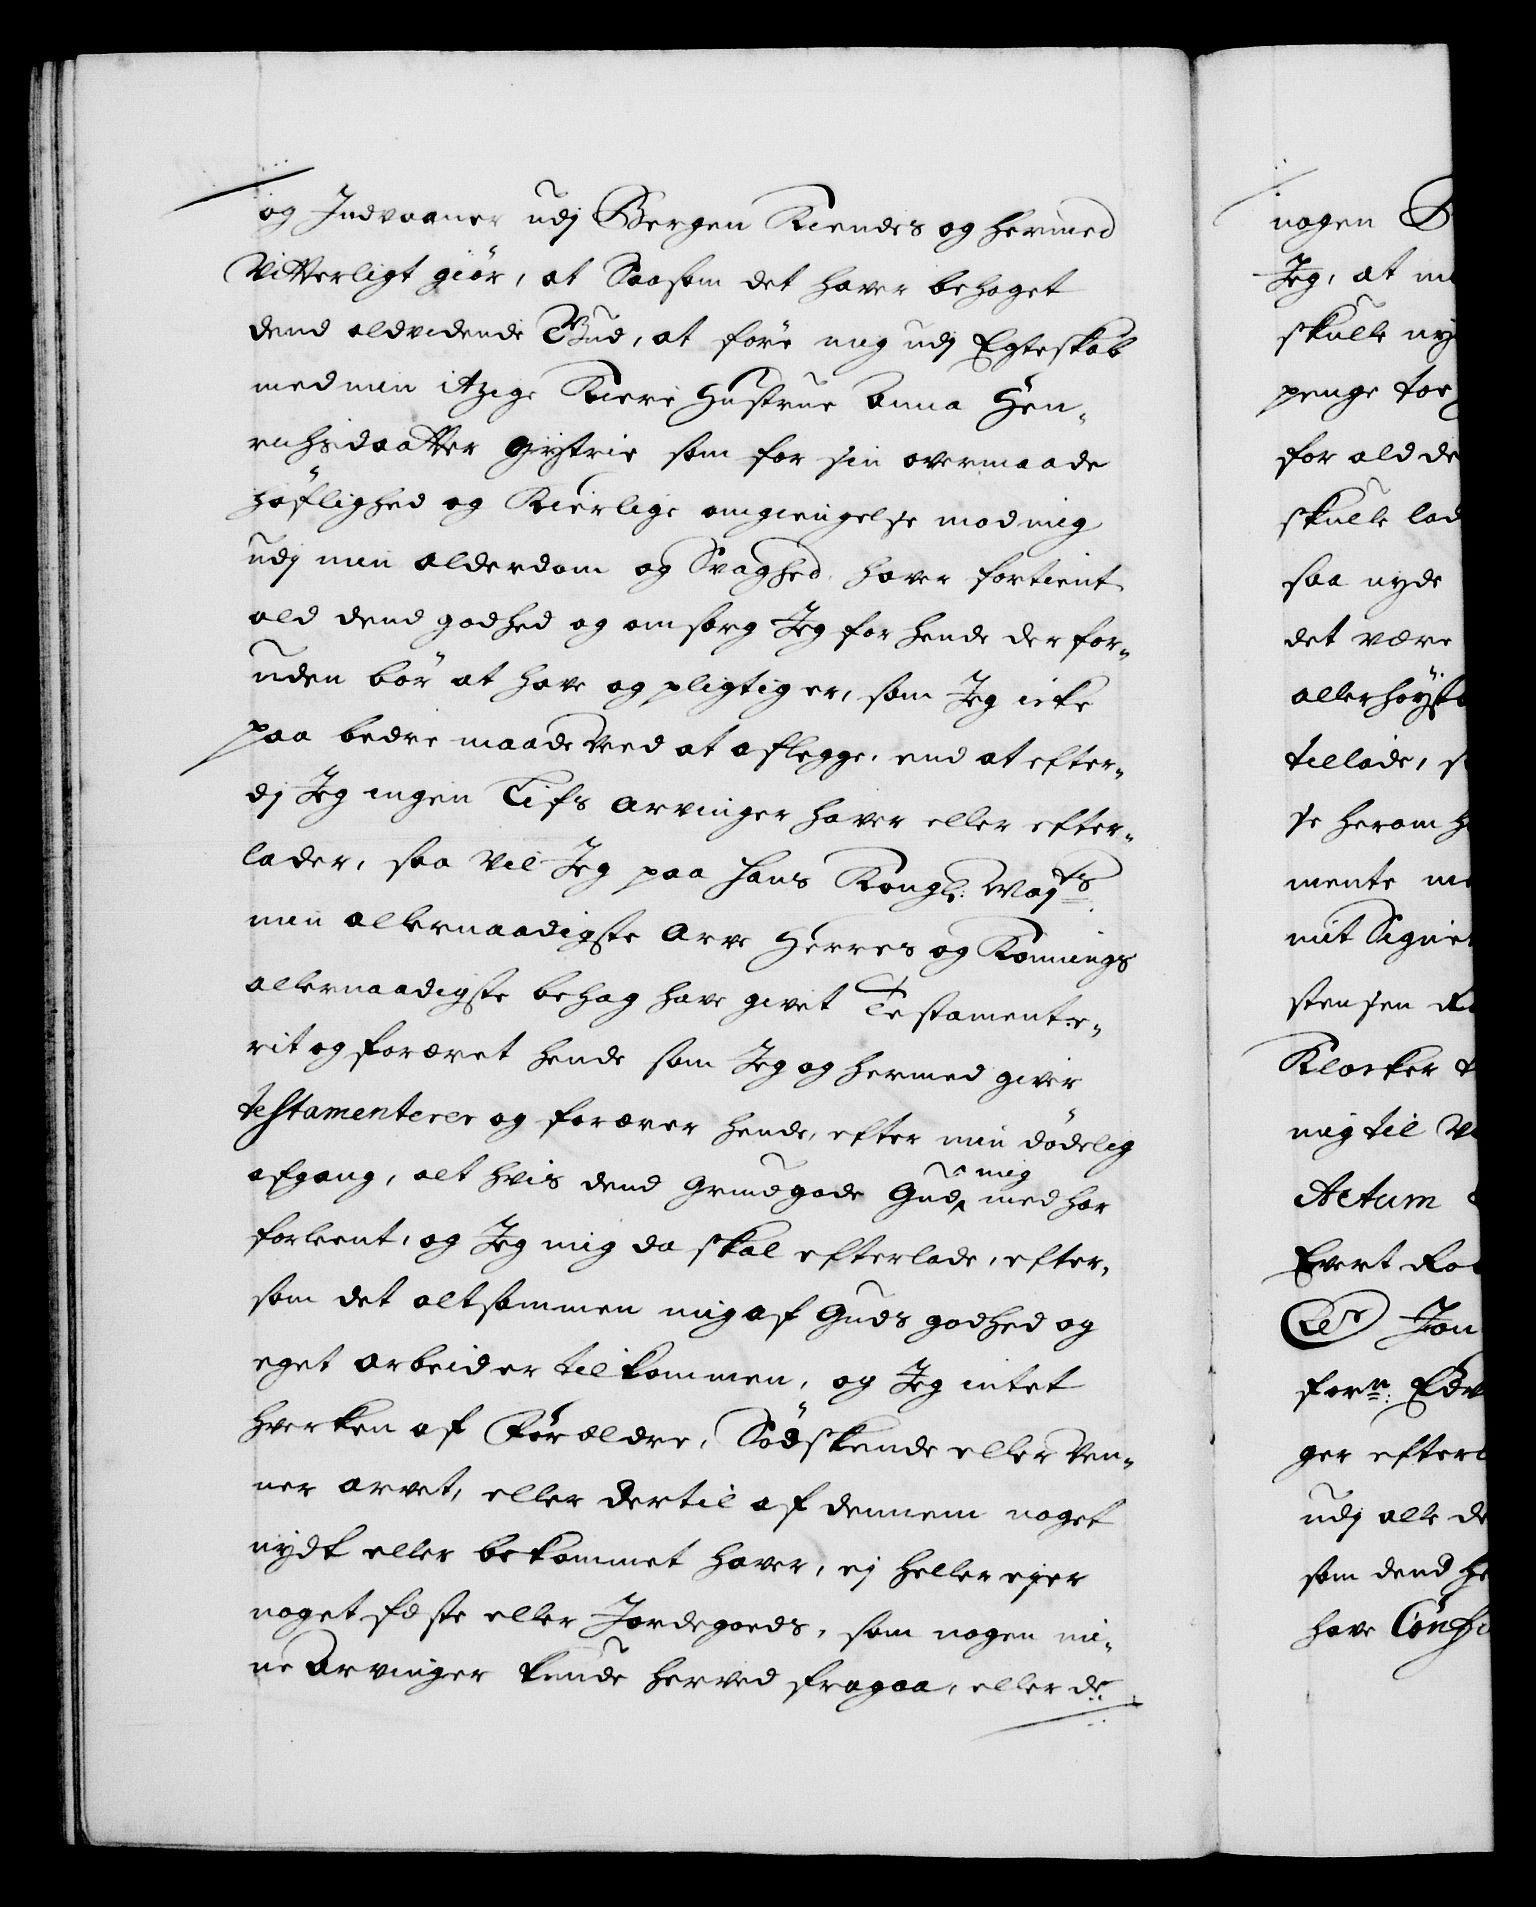 og Indvaaner udj Bergen Kiendes og hermed
Vitterligt giör, at Saasom det haver behaget
dend aldvidende Gud, at före mig udj Egteskab
med min itzige Kiere Hustrue Anna Hen-
richsdaatter Gystrie som for sin overmaade
höflighed og Kierlige omgiengelse mod mig
udj min alderdom og Svaghed, haver fortient
ald dend godhed og omsorg Jeg for hende der for-
uden bör at have og pligtig er, som Jeg icke
paa bedre maade ved at aflegge, end at efter-
dj Jeg ingen Lifs Arvinger haver eller efter-
lader, saa vil Jeg paa Hans Kongl: May:ts
min allernaadigste Arve Herres og Konnings
allernaadigste behag have givet Testamente-
rit og foræret hende som Jeg og hermed giver
testamenterer og forærer hende, efter min dödelig
afgang, alt hvis dend Grundgode Gud mig med har
forleent, og Jeg mig da skal efterlade, efter-
som det altsammen mig af Guds godhed og
eget Arbeid er tilkommen, og Jeg intet
hverken af Forældre, Södskende eller Ven-
ner arvet, eller dertil af dennem noget
nydt eller bekommet haver, ej heller ejer
noget fæste eller Jordegoeds, som nogen mi-
ne Arvinger kunde herved fragaa, eller de
nogen
Jeg, at
skulle
penge
for ald
skulle
saa nyde
det være
allerhöyst
tillade,
se herom
mente
mit Signet
stensen
Klocker
mig til
Actum
Evert
Jon
forn:
ger
udj alle
som dend
have